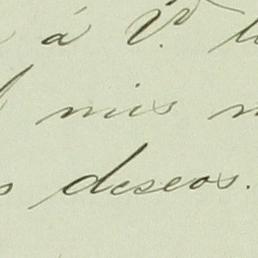 á V.
mis
deseos.